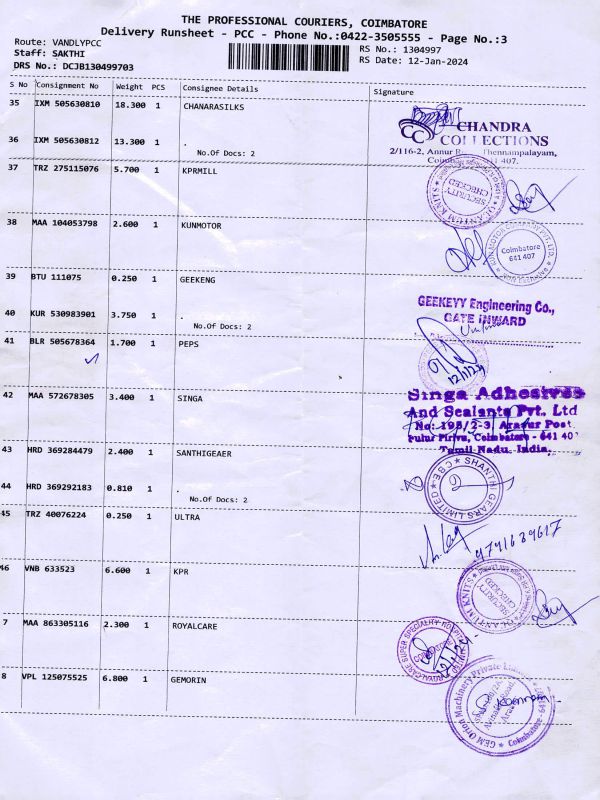 THE PROFESSIONAL COURIERS, COIMBATORE
Delivery Runsheet - PCC - Phone No.:0422-3505555 - Page No.:3
Route: VANDLYPCC
Staff: SAKTHI
DRS No.: DCJB130499703
RS No.: 1304997
RS Date: 12-Jan-2024
S No Consignment No Weight PCS Consignee Details Signature
35 IXM 505630810 18.300 1 CHANARASILKS
CHANDRA
COLLECTIONS
2/116-2, Annur Thennampalayam,
407.
36 IXM 505630812 13.300 1 .
No.Of Docs: 2
37 TRZ 275115076 5.700 1 KPRMILL
SECURITY
CHECKED
38 MAA 104053798 2.600 1 KUNMOTOR
Coimbatore
641 407
39 BTU 111075 0.250 1 GEEKENG
GEEKEYY Engineering Co.,
GATE INWARD
40 KUR 530983901 3.750 1 .
No.Of Docs: 2
41 BLR 505678364 1.700 1 PEPS
12/1/24
42 MAA 572678305 3.400 1 SINGA
Singa Adhesives
And Sealants Pvt. Ltd
No: 195/2-3, Arasur Post,
Pulur Pirivu, Coimbatore - 641 40
Tamil Nadu, India.
43 HRD 369284479 2.400 1 SANTHIGEAER
SHANTHI GEARS LIMITED ★ CBE ★
44 HRD 369292183 0.810 1 .
No.Of Docs: 2
45 TRZ 40076224 0.250 1 ULTRA
9791689617
46 VNB 633523 6.600 1 KPR
SECURITY
CHECKED
7 MAA 863305116 2.300 1 ROYALCARE
ROYALCARE SUPER SPECIALITY HOSPITAL
12/1/24
8 VPL 125075525 6.800 1 GEMORIN
GEM Orion Machinery Private Limited
Coimbatore - 641